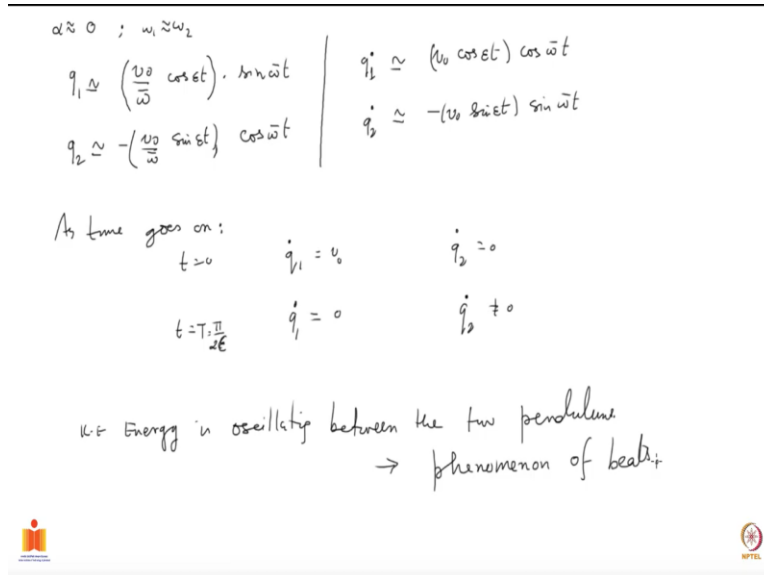 α ≈ 0 ; ω₁ ≈ ω₂
q₁ ≃ (v₀/ω̄ cos εt) · sin ω̄t
q₂ ≃ -(v₀/ω̄ sin εt) cos ω̄t
q̇₁ ≃ (v₀ cos εt) cos ω̄t
q̇₂ ≃ -(v₀ sin εt) sin ω̄t
As time goes on :
t = 0 q̇₁ = v₀ q̇₂ = 0
t = T = π/2ε q̇₁ = 0 q̇₂ ≠ 0
K.E Energy is oscillatig between the two pendulums.
→ phenomenon of beats.
NPTEL